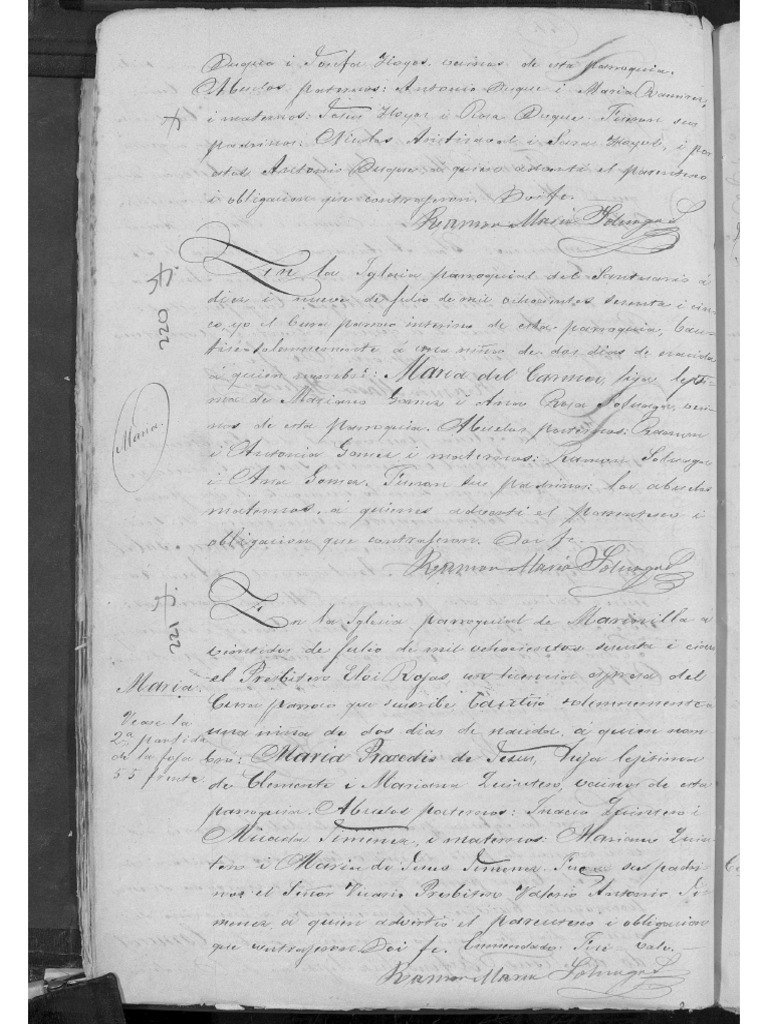 Duque i Josefa Hoyos vecinos de esta parroquia.
Abuelos paternos: Antonio Duque i Maria Ramirez,
i maternos: Jesus Hoyos i Rosa Duque. Fueron sus
padrinos: Nicolas Aristizaval i Sara Hoyos, i por
Antonio Duque, a quienes adverti el parentesco
i obligacion que contrajeron. Doi fe.
Ramon Maria
220
Maria.
En la Iglesia parroquial del Santuario á
diez i nueve de julio de mil ochocientos sesenta i cin-
co, yo el Cura parroco interino de esta parroquia, bau-
tisé solemnemente á una niña de dos dias de nacida
á quien nombré: Maria del Carmen, hija lejiti-
ma de Mariano Gomez i Ana Rosa veci-
nos de esta parroquia. Abuelos paternos: Ramon
i Antonia Gomez i maternos: Ramon
i Ana Gomez. Fueron sus padrinos: los abuelos
maternos, á quienes adverti el parentesco i
obligacion que contrajeron. Doi fe.
Ramon Maria
221
Maria.
Vease la
2ª partida
de la foja
55 frente.
En la Iglesia parroquial de Marinilla a
veintidos de julio de mil ochocientos sesenta i cinco
el Presbitero Eloi Rojas, con licencia espresa del
Cura parroco que suscribe bautisó solemnemente
una niña de dos dias de nacida, á quien nom-
bró: Maria Praxedis de Jesus, hija lejitima
de Clemente i Mariana Quintero, vecinos de esta
parroquia. Abuelos paternos: Ignacio Quintero i
Micaela Jimenez, i maternos: Mariano Quin-
tero i Maria de Jesus Jimenez. Fueron sus padri-
nos el Señor Vicario Presbitero Valerio Antonio Ji-
menez, á quien advirtió el parentesco i obligacion
que contrajeron Doi fe. Enmendado. Vale.
Ramon Maria